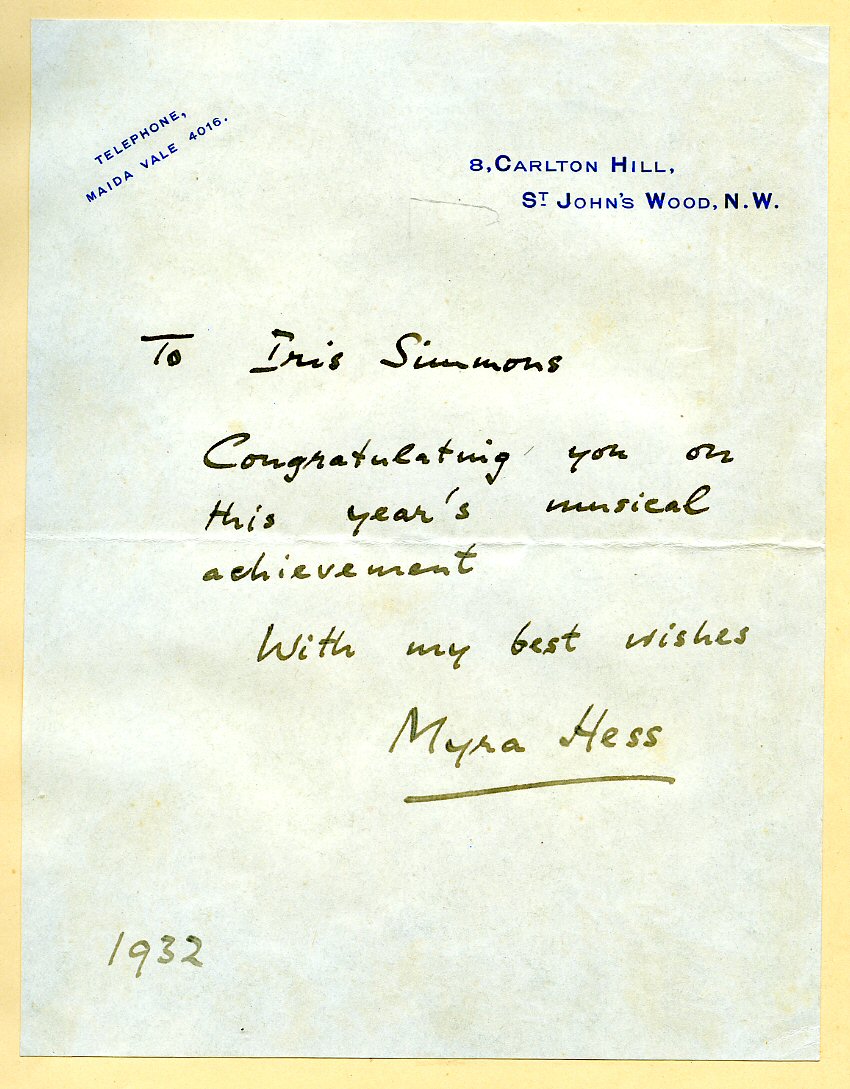 TELEPHONE,
MAIDA VALE 4016.
8, CARLTON HILL,
ST JOHN'S WOOD, N.W.
To Iris Simmons
Congratulating you on
this year's musical
achievement
With my best wishes
Myra Hess
1932